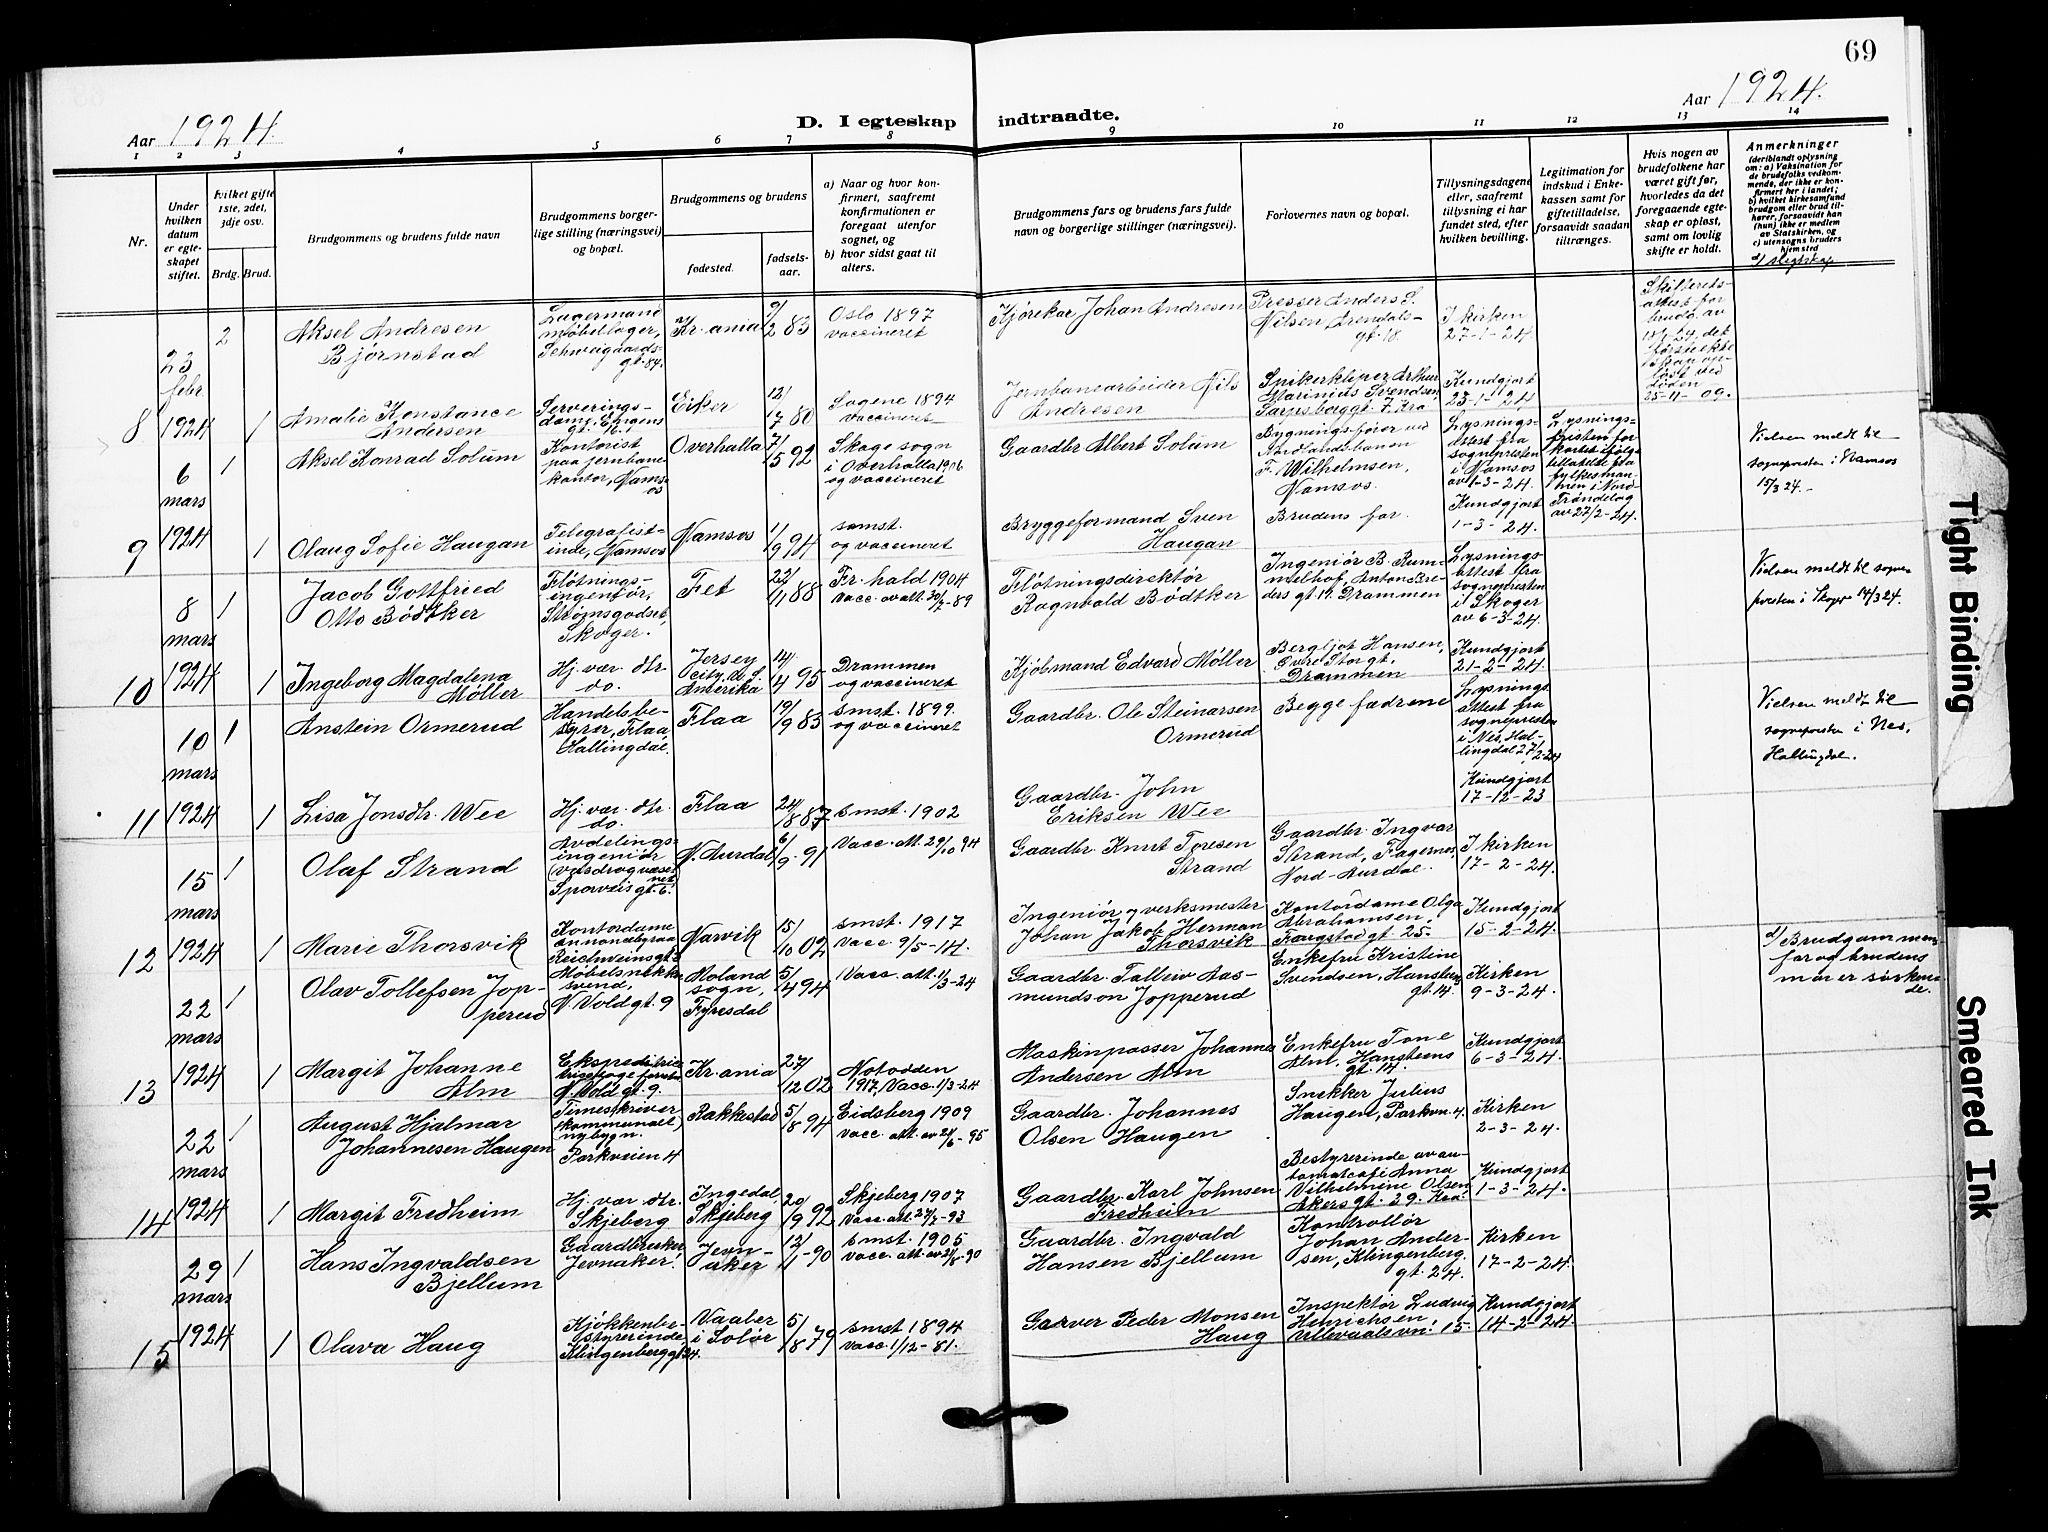 69
Aar 1924.
D. I egteskap indtraadte.
Aar 1924.
1 2 3 4 5 6 7 8 9 10 11 12 13 14
Nr.
Under
hvilken
datum
er egte-
skapet
stiftet.
hvilket gifte
1ste, 2det,
3dje osv.
Brdg. Brud.
Brudgommens og brudens fulde navn
Brudgommens borger-
lige stilling (næringsvei)
og bopæl.
Brudgommens og brudens
fødested.
fødsels-
aar.
a) Naar og hvor kon-
firmert, saafremt
konfirmationen er
foregaat utenfor
sognet, og
b) hvor sidst gaat til
alters.
Brudgommens fars og brudens fars fulde
navn og borgerlige stillinger (næringsvei).
Forlovernes navn og bopæl.
Tillysningsdagene
eller, saafremt
tillysning ei har
fundet sted, efter
hvilken bevilling.
Legitimation for
indskud i Enke-
kassen samt for
giftetilladelse,
forsaavidt saadan
tiltrænges.
Hvis nogen av
brudefolkene har
været gift før,
hvorledes da det
foregaaende egte-
skap er opløst,
samt om lovlig
skifte er holdt.
Anmerkninger
(deriblandt oplysning
om: a) Vaksination for
de brudefolks vedkom-
mende, der ikke er kon-
firmert her i landet;
b) hvilket kirkesamfund
brudgom eller brud til-
hører, forsaavidt han
(hun) ikke er medlem
av Statskirken, og
c) utensogns bruders
hjemsted
d/ slegtskap
8
23
febr
1924
2
Aksel Andresen
Bjørnstad
Lagermand
møbellager,
Schweigaards-
gt. 84.
Kr.ania
9/2 83
Oslo 1897
vaccineret
Kjørekar Johan Andresen
Presser Anders S.
Nilsen Arendals-
gt. 18.
I kirken
27-1-24
Skifterets-
attest for
brudg. av
det
første ekte-
skap op-
løst ved
døden
25-11-09.
1
Amalie Konstance
Andersen
Serverings-
dame,
Eiker
12/7 80
Sagene 1894
vaccineret
Jernbanearbeider Nils
Andresen
Arthur
Marinius Svendsen
Sarpsborggt. 7. Kra
Kundgjort
23-1-24
9
6
mars
1924
1
Aksel Konrad Solum
Kontorist
paa jernbane-
kontor, Nams-
os
Overhalla
7/5 92
Skage sogn
i Overhalla 1906
og vaccineret
Gaardbr. Albert Solum
Bygningsfører ved
Nordlandsbanen
F. Wilhelmsen,
Namsos.
Lysnings-
attest fra
sognepresten
i Namsos
av 1-3-24.
Lysnings-
fristen for-
kortet ifølge
tillatelse fra
fylkesman-
nen i Nord-
Trøndelag
av 27/2-24.
Vielsen meldt til
sognepresten i Namsos
15/3 24.-
1
Olaug Sofie Haugan
Telegrafist-
inde, Namsos
Namsos
1/9 94
smst.
og vaccineret
Bryggeformand Sven
Haugan
Brudens far.
Kundgjort
1-3-24.
10
8
mars
1924
1
Jacob Gottfried
Otto Bödtker
Fløtnings-
ingeniør,
Strømsgodset,
Skoger.
Fet
22/11 88
Fr.hald 1904
Vacc.av att. 30/7-89
Fløtningsdirektör
Ragnvald Bödtker
Ingeniör B. Rum-
melhof, Anton Bre-
ders gt. 19. Drammen
Lysnings-
attest fra
sognepresten
i Skoger
av 6-3-24.
Vielsen meldt til sogne-
presten i Skoger 14/3 24.
1
Ingeborg Magdalena
Møller
Hj. vær. dtr.
do.
Jersey
city, U.S.
Amerika
14/4 95
Drammen
og vaccineret
Kjøbmand Edvard Møller
Bergljot Hansen,
Øvre Storgt.
Drammen
Kundgjort
21-2-24.
11
10
mars
1924
1
Anstein Ormerud
Handelsbe-
styrer, Flaa,
Hallingdal.
Flaa
19/9 83
smst. 1899.
og vaccineret
Gaardbr. Ole Steinarsen
Ormerud
Begge fædrene
Lysnings-
attest fra
sognepresten
i Nes, Hal-
lingdal 27/2-24
Vielsen meldt til
sognepresten i Nes,
Hallingdal.
1
Lisa Jonsdtr. Wee
Hj. vær. dtr.
do.
Flaa
24/8 87
smst. 1902
Gaardbr. John
Eriksen Wee
Kundgjort
17-12-23
12
15
mars
1924
1
Olaf Strand
Avdelings-
ingeniör
(vasdragvæse-
net)
Sporveisgt. 6.
N. Aurdal
6/9-91
Vacc. att. 29/10 94
Gaardbr. Knut Toresen
Strand
Gaardbr. Ingvar
Strand, Fagernes,
Nord-Aurdal.
I kirken
17-2-24.
1
Marie Thorsvik
Kontordame
annoncebyraa
Narvik
15/10 02
smst. 1917
Vacc 9/5-14.
Ingeniör og verksmester
Johan Jakob Herman
Thorsvik
Kontordame Olga
Abrahamsen,
Fougstadgt 25-
Kundgjort
15-2-24.
13
22
mars
1924
1
Olav Tollefsen Jop-
perud
Møbelsnekker-
svend,
N. Voldgt. 9
Moland
sogn,
Fyresdal
5/4 94
Vacc. att. 1/3-24
Gaardbr. Talleiv Aas-
mundson Jopperud
Enkefru Kristine
Svendsen, Hansteens
gt. 14.
Kirken
9-3-24.
d/ Brudgommens
far og brudens
mor er sösken-
de.
1
Margit Johanne
Alm
N. Vold gt. 9.
Kr.ania
27/12 02
Notodden
1917, Vacc. 1/3-24
Maskinpasser Johannes
Andersen Alm
Enkefru Tone
Alm, Hansteens
gt. 14.
Kundgjort
6-3-24.
14
22
mars
1924
1
August Hjalmar
Johannesen Haugen
Timeskriver
(kommunale
nybygn.
Parkveien 4
Rakkestad
5/8 94
Eidsberg 1909
Vacc. att. av 24/6-95
Gaardbr. Johannes
Olsen Haugen
Snekker Julius
Haugen, Parkvn. 4.
Kirken
2-3-24.
1
Margit Fredheim
Hj. vær. dtr.
Skjeberg
Ingedal,
Skjeberg
20/9 92
Skjeberg 1907
Vacc. att. 24/7-93
Gaardbr. Karl Johnsen
Fredheim
Bestyrerinde av au-
tomatcafé Anna
Vilhelmine Olsen
Akersgt. 39. Kra.
Kundgjort
1-3-24.
15
29
mars
1924
1
Hans Ingvaldsen
Bjellum
Gaardbruker
Jevnaker.
Jevn-
aker
12/1-90
smst. 1905
Vacc. att. av 21/8-90
Gaardbr. Ingvald
Hansen Bjellum
Kontrollør
Johan Ander-
sen, Klingenberg-
gt. 24.
Kirken
17-2-24.
1
Olava Haug
Kjøkkenbe-
styrerinde
Klingenberggt. 24.
Vaaler
i Solør
5/8 79
smst 1894
Vacc. 1/12-81.
Garver Peder Monsen
Haug
Inspektör Ludvig
Hinrichsen
Ullevaalsvn. 15-
Kundgjort
14-2-24.
Tight Binding
Smeared Ink